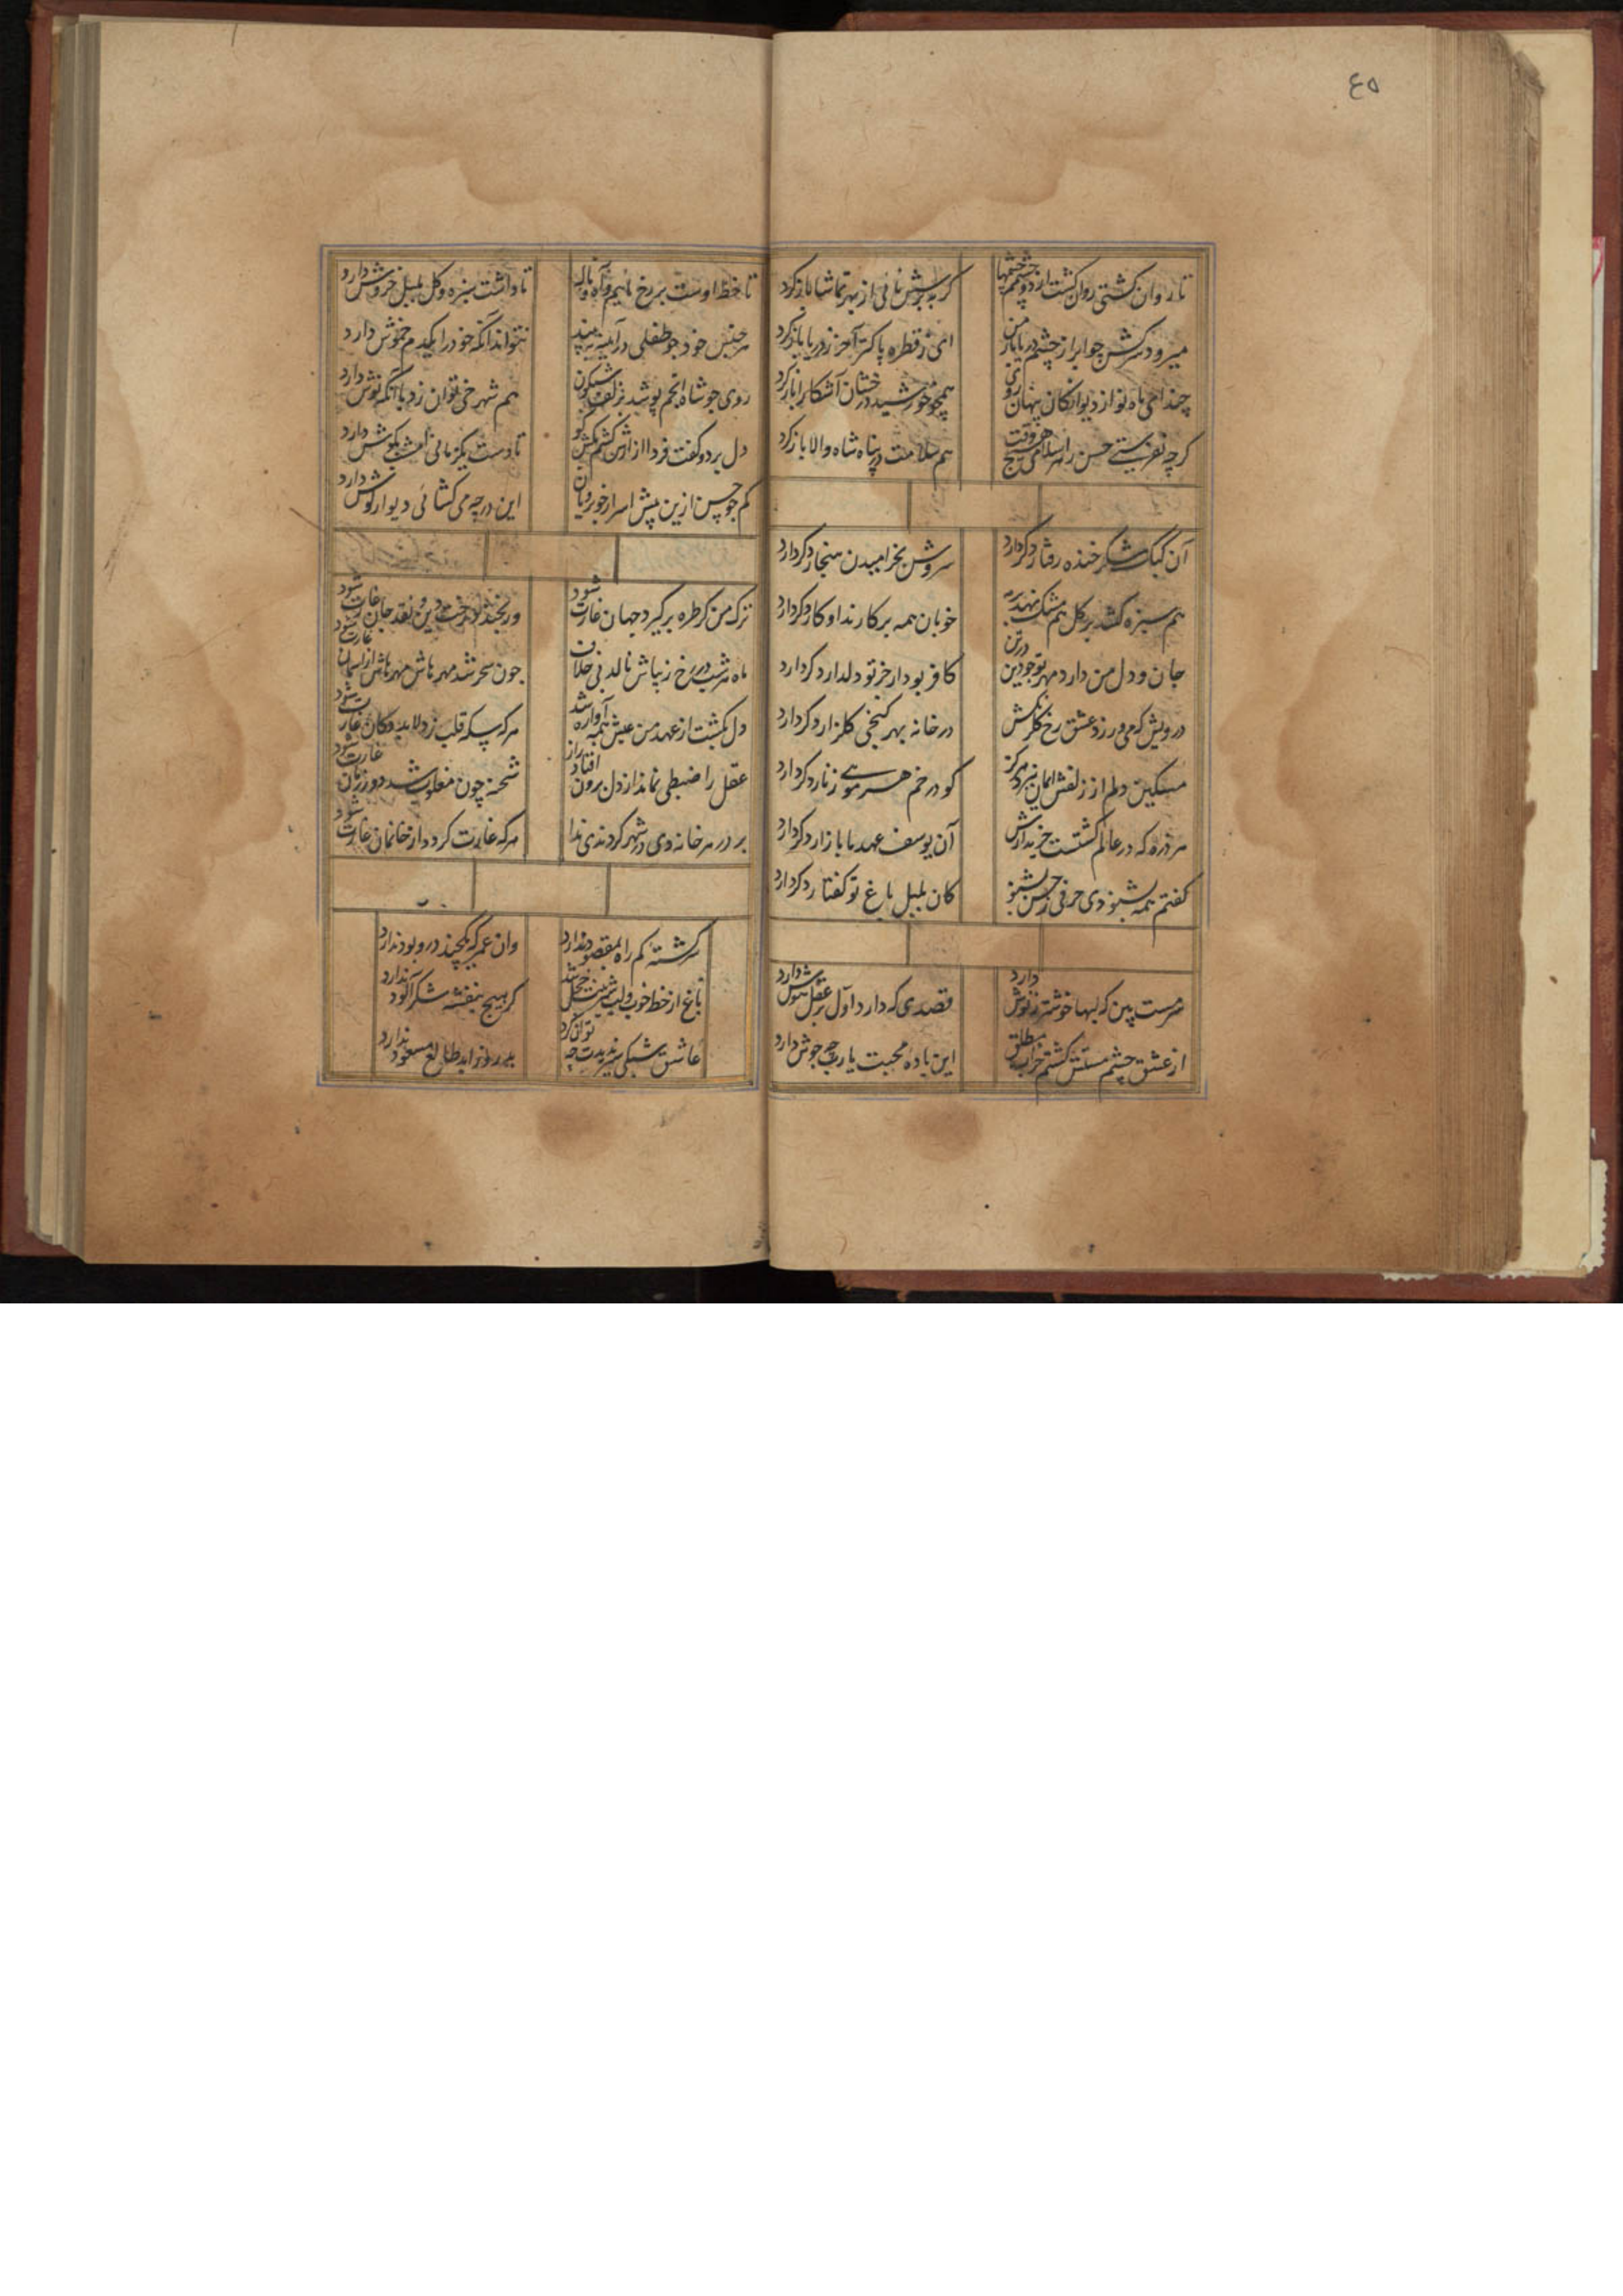 ٤٥
تا روان کشتی روان کشت از دو چشمم چشمها
کر به پرسش نائی از بهر تماشا باز کرد
میرود سرکش جو ابر از چشم در بار من
ای ز قطره پاکتر آخر ز دریا باز کرد
چند ای ماه نو از دیوانکان پنهان روی
همچو خورشید درخشان آشکارا باز کرد
کرچه نفریبی حسن را
هم سلامت در پناه شاه والا باز کرد
آن کبک شکر خنده رفتار دکر دارد
سروش بخرامیدن هنجار دکر دارد
هم سبزه کشد بر کل هم مشک نهد بر مه
خوبان همه بر کارند او کار دکر دارد
جان و دل من دارد مهر تو جو دین در تن
کافر بود ار جز تو دلدار دکر دارد
درویش که می ورزد عشق رخ کلرنکش
در خانه بهر کنجی کلزار دکر دارد
مسکین دلم از زلفش ایمان نبرد هرکز
کو در خم هر موئے زنار دکر دارد
هر ذره که در عالم کشتست خریدارش
آن یوسف عهد ما بازار دکر دارد
کفتم همه بشنودی حرفی ز حسن بشنو
کان بلبل باغ تو کفتار دکر دارد
سرمست بین که لبها خوشتر ز نوش دارد
قصدی که دارد اول بر عقل و هوش دارد
از عشق چشم مستش کشتم خراب مطلق
این باده محبت یا رب چه جوش دارد
تا خط اوست بر رخ مائیم و آه و ناله
تا واشت سبزه و کل بلبل خروش دارد
هر جنبش خود جو طفلی در آینه به بیند
نتواند آنکه خود را یکدم خموش دارد
روی جو شاه انجم پوشید زلف شبکون
هم شهر خی توان زد با آنکه توش دارد
دل برد و کفت فردا از آتش کشم
تا دست یکزمانی
کم جو حسن ازین پیش اسرار خوبرویان
این در چه می کشائی دیوار کوش دارد
ترک من کر طره بر کیرد جهان غارت شود
ور بخندد رخت دین و نقد جان غارت شود
ماه هر شب در رخ زیباش نالد بی خلاف
جون سحر شد مهر باش از آسمان غارت شود
دل بکشت از عهد من عیش همه آواره شد
هرکه سکه قلب زد لابد دکان غارت شود
عقل را ضبطی نماند از دل برون افتاد راز
شحنه چون مغلوب شد در زمان غارت شود
بر در هر خانه دی در شهر کردندی ندا
هرکه غارت کرد دار خانمان غارت شود
سرکشته کم راه مقصود ندارد
وان عمر که بکچند درو بود ندارد
باغ از خط خوب و لب شیرینت خجل شد
کر هیچ بنفشه شکر آلود ندارد
عاشق شبکی سیر ندیدت چه توان کرد
طالع مسعود ندارد